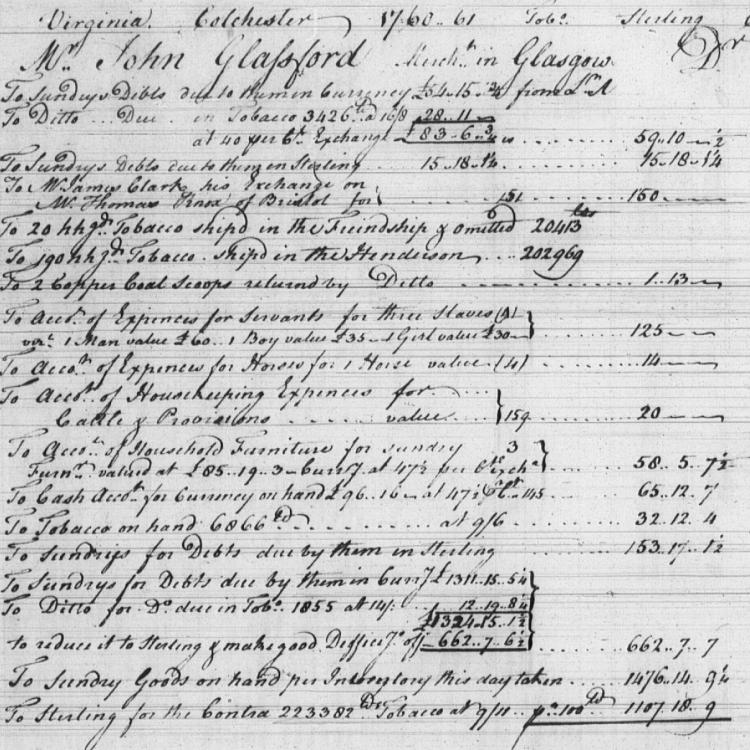 Virginia. Colchester 1760..61 Tobo. Sterling
Mr. John Glassford Mercht. in Glasgow Dr
To Sundrys Debts due to them in Currency £54..15..¾ from Lr A
To Ditto .. Due .. in Tobacco 3426 lb a 16/8 28..11
at 40 per Ct. Exchange £83..6..¾ is 59..10..½
To Sundrys Debts due to them in Sterling 15..18..1¼ 15..18..1¼
To Mr. James Clark his Exchange on
Mr. Thomas Knox of Bristol for 151 150
To 20 hhgds. Tobacco shipd in the Freindship & omitted 20413
To 190 hhgds. Tobacco shipd in the Henderson 202969
To 2 Copper Coal Scoops returnd by Ditto 1..13
To Accot. of Expences for Servants for three Slaves
vizt. 1 Man value £60..1 Boy value £35..1 Girl value £30 125
To Accot. of Expences for Horses for 1 Horse value (4) 14
To Accot. of Housekeeping Expences for
Cattle & Provisions value 159 20
To Accot. of Household Furniture for sundry 3
Furnre. valued at £85..19..3 Curry at 47½ per Ct. Exche 58..5..7½
To Cash Accot. for Currency on hand £96..16 at 47½ Ct. 145 65..12..7
To Tobacco on hand 6866 lb at 9/6 32..12..4
To Sundrys for Debts due by them in Sterling 153..17..1½
To Sundrys for Debts due by them in Curry £1311..15..5¼
To Ditto for Do. due in Tobo. 1855 at 14/ 12..19..8¼
£1324..15..1½
to reduce it to Sterling & make good Defficy. off 662..7..6½ 662..7..7
To Sundry Goods on hand per Inventory this day taken 1476..14..9¼
To Sterling for the Contra 223382 lb Tobacco at 9/11 pr. 100 lb 1107..18..9